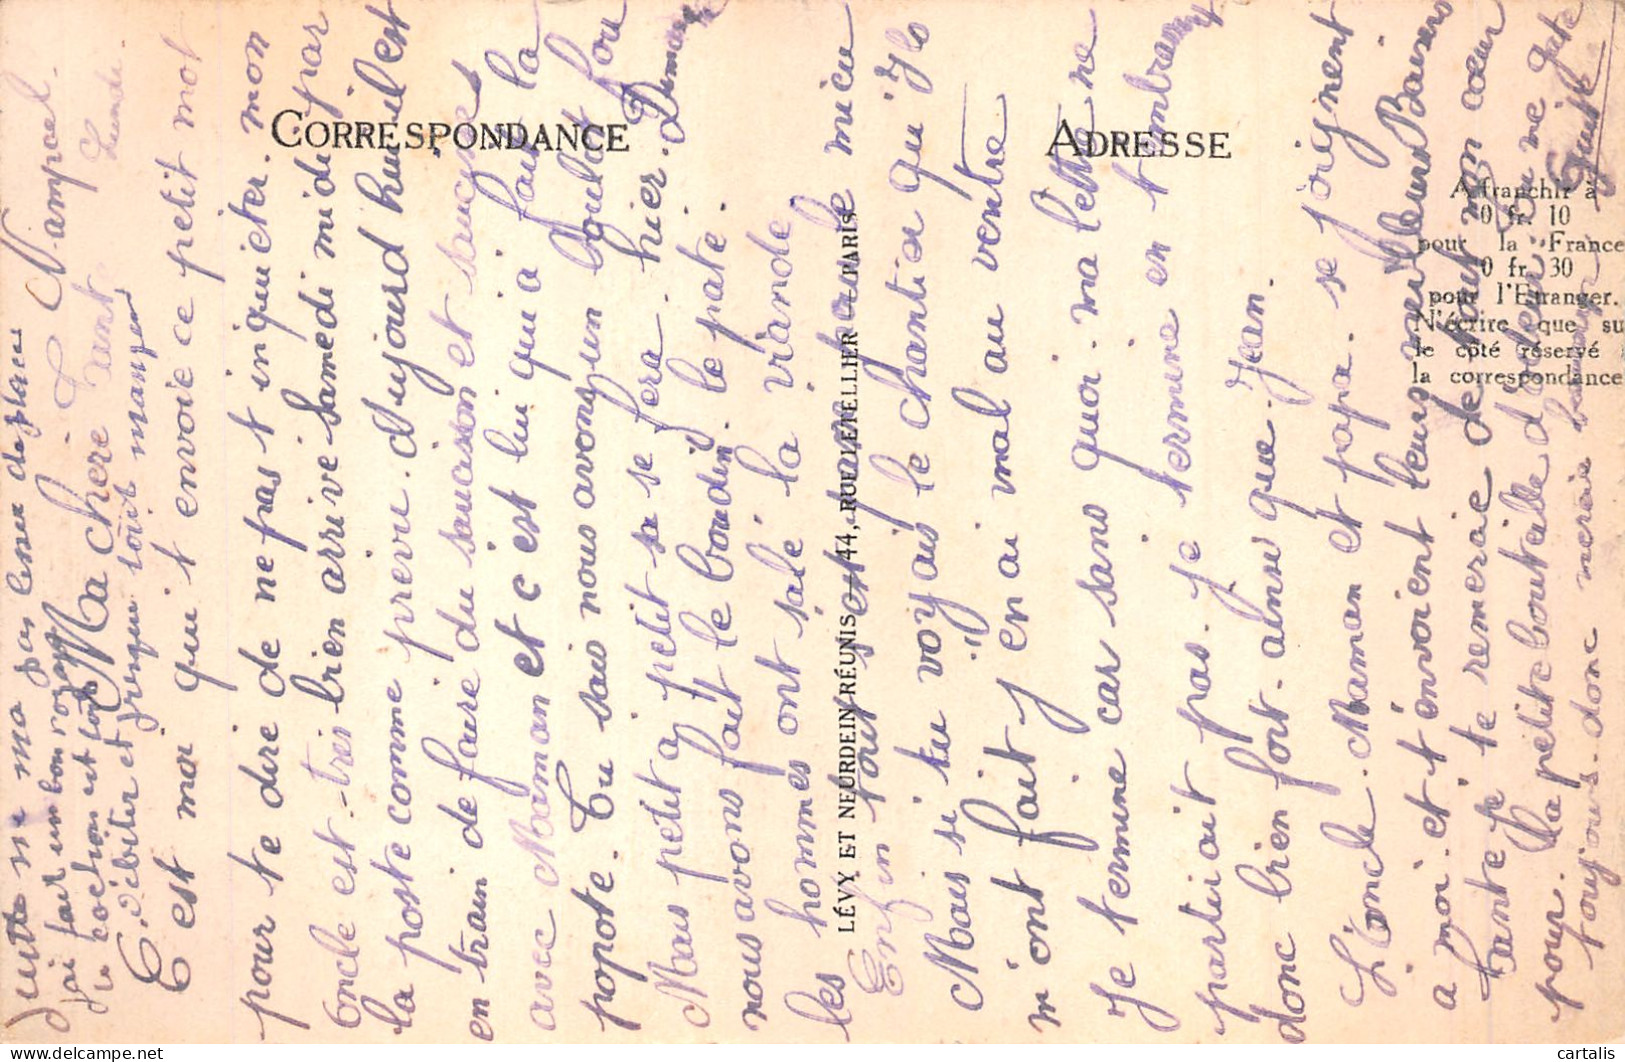 Nampcel.
Lundi
Ma chère Tante
C est moi qui t envoie ce petit mot
pour te dire de ne pas t inquiéter. mon
oncle est-très bien arrivé Samedi midi par
la poste comme prévu. Aujourd hui il est
en train de faire du saucisson et saucisse
avec Maman et c'est lui qui a fait la
popote. Tu sais nous avons un boulot fou
Mais petit a petit sa se fera. hier Dimanche
nous avons fait le boudin. le paté.
les hommes ont salé la viande
Enfin tout est
Mais si tu voyais le chantier qu'ils
m'ont fait j en ai mal au ventre
Je termine car sans quoi. ma lettre ne
partirait pas. Je termine en t embrassant
donc bien fort. ainsi que. Jean.
L'oncle. Maman et papa. se joignent
a moi. et t envoient leurs meilleurs Baisers
tante je te remercie de tout mon cœur
pour. la petite bouteille d
toujours. donc merci
C'débiter et presque tout manger
le cochon est
j'ai fait un bon voyage
CORRESPONDANCE
ADRESSE
Affranchir à
0 fr. 10
pour la France
0 fr. 30
pour l'Etranger.
N'écrire que su
le côté réservé
la correspondance
LÉVY ET NEURDEIN RÉUNIS — 44, RUE LETELLIER — PARIS
cartalis